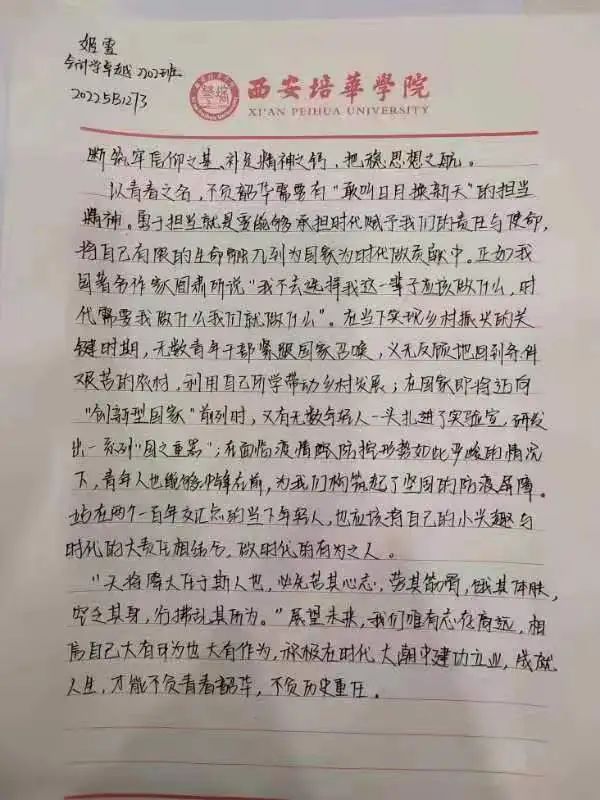 姬雪
会计学卓越2202班
202251B1273
西安培華學院
XI'AN PEIHUA UNIVERSITY
断筑牢信仰之基、补足精神之钙，把稳思想之舵。
以青春之名，不负韶华需要有“敢叫日月换新天”的担当
精神。勇于担当就是要能够承担时代赋予我们的责任与使命，
将自己有限的生命融入到为国家为时代做贡献中。正如我
国著名作家阎肃所说“我不去选择我这一辈子应该做什么，时
代需要我做什么我们就做什么”。在当下实现乡村振兴的关
键时期，无数青年干部紧跟国家召唤，义无反顾地回到条件
艰苦的农村，利用自己所学带动乡村发展；在国家即将迈向
“创新型国家”前列时，又有无数年轻人一头扎进了实验室，研发
出一系列“国之重器”；在面临疫情防控形势如此严峻的情况
下，青年人也能够冲锋在前，为我们构筑起了坚固的防疫屏障。
站在两个一百年交汇点的当下年轻人，也应该将自己的小兴趣与
时代的大责任相结合，做时代的有为之人。
“天将降大任于斯人也，必先苦其心志，劳其筋骨，饿其体肤，
空乏其身，行拂乱其所为。”展望未来，我们唯有志存高远，相
信自己大有可为也大有作为，积极在时代大潮中建功立业，成就
人生，才能不负青春韶华，不负历史重任。